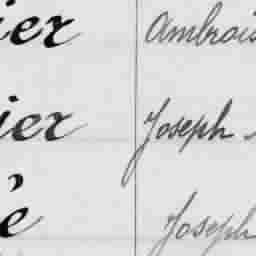 ier Ambrois
ier Joseph
é Joseph